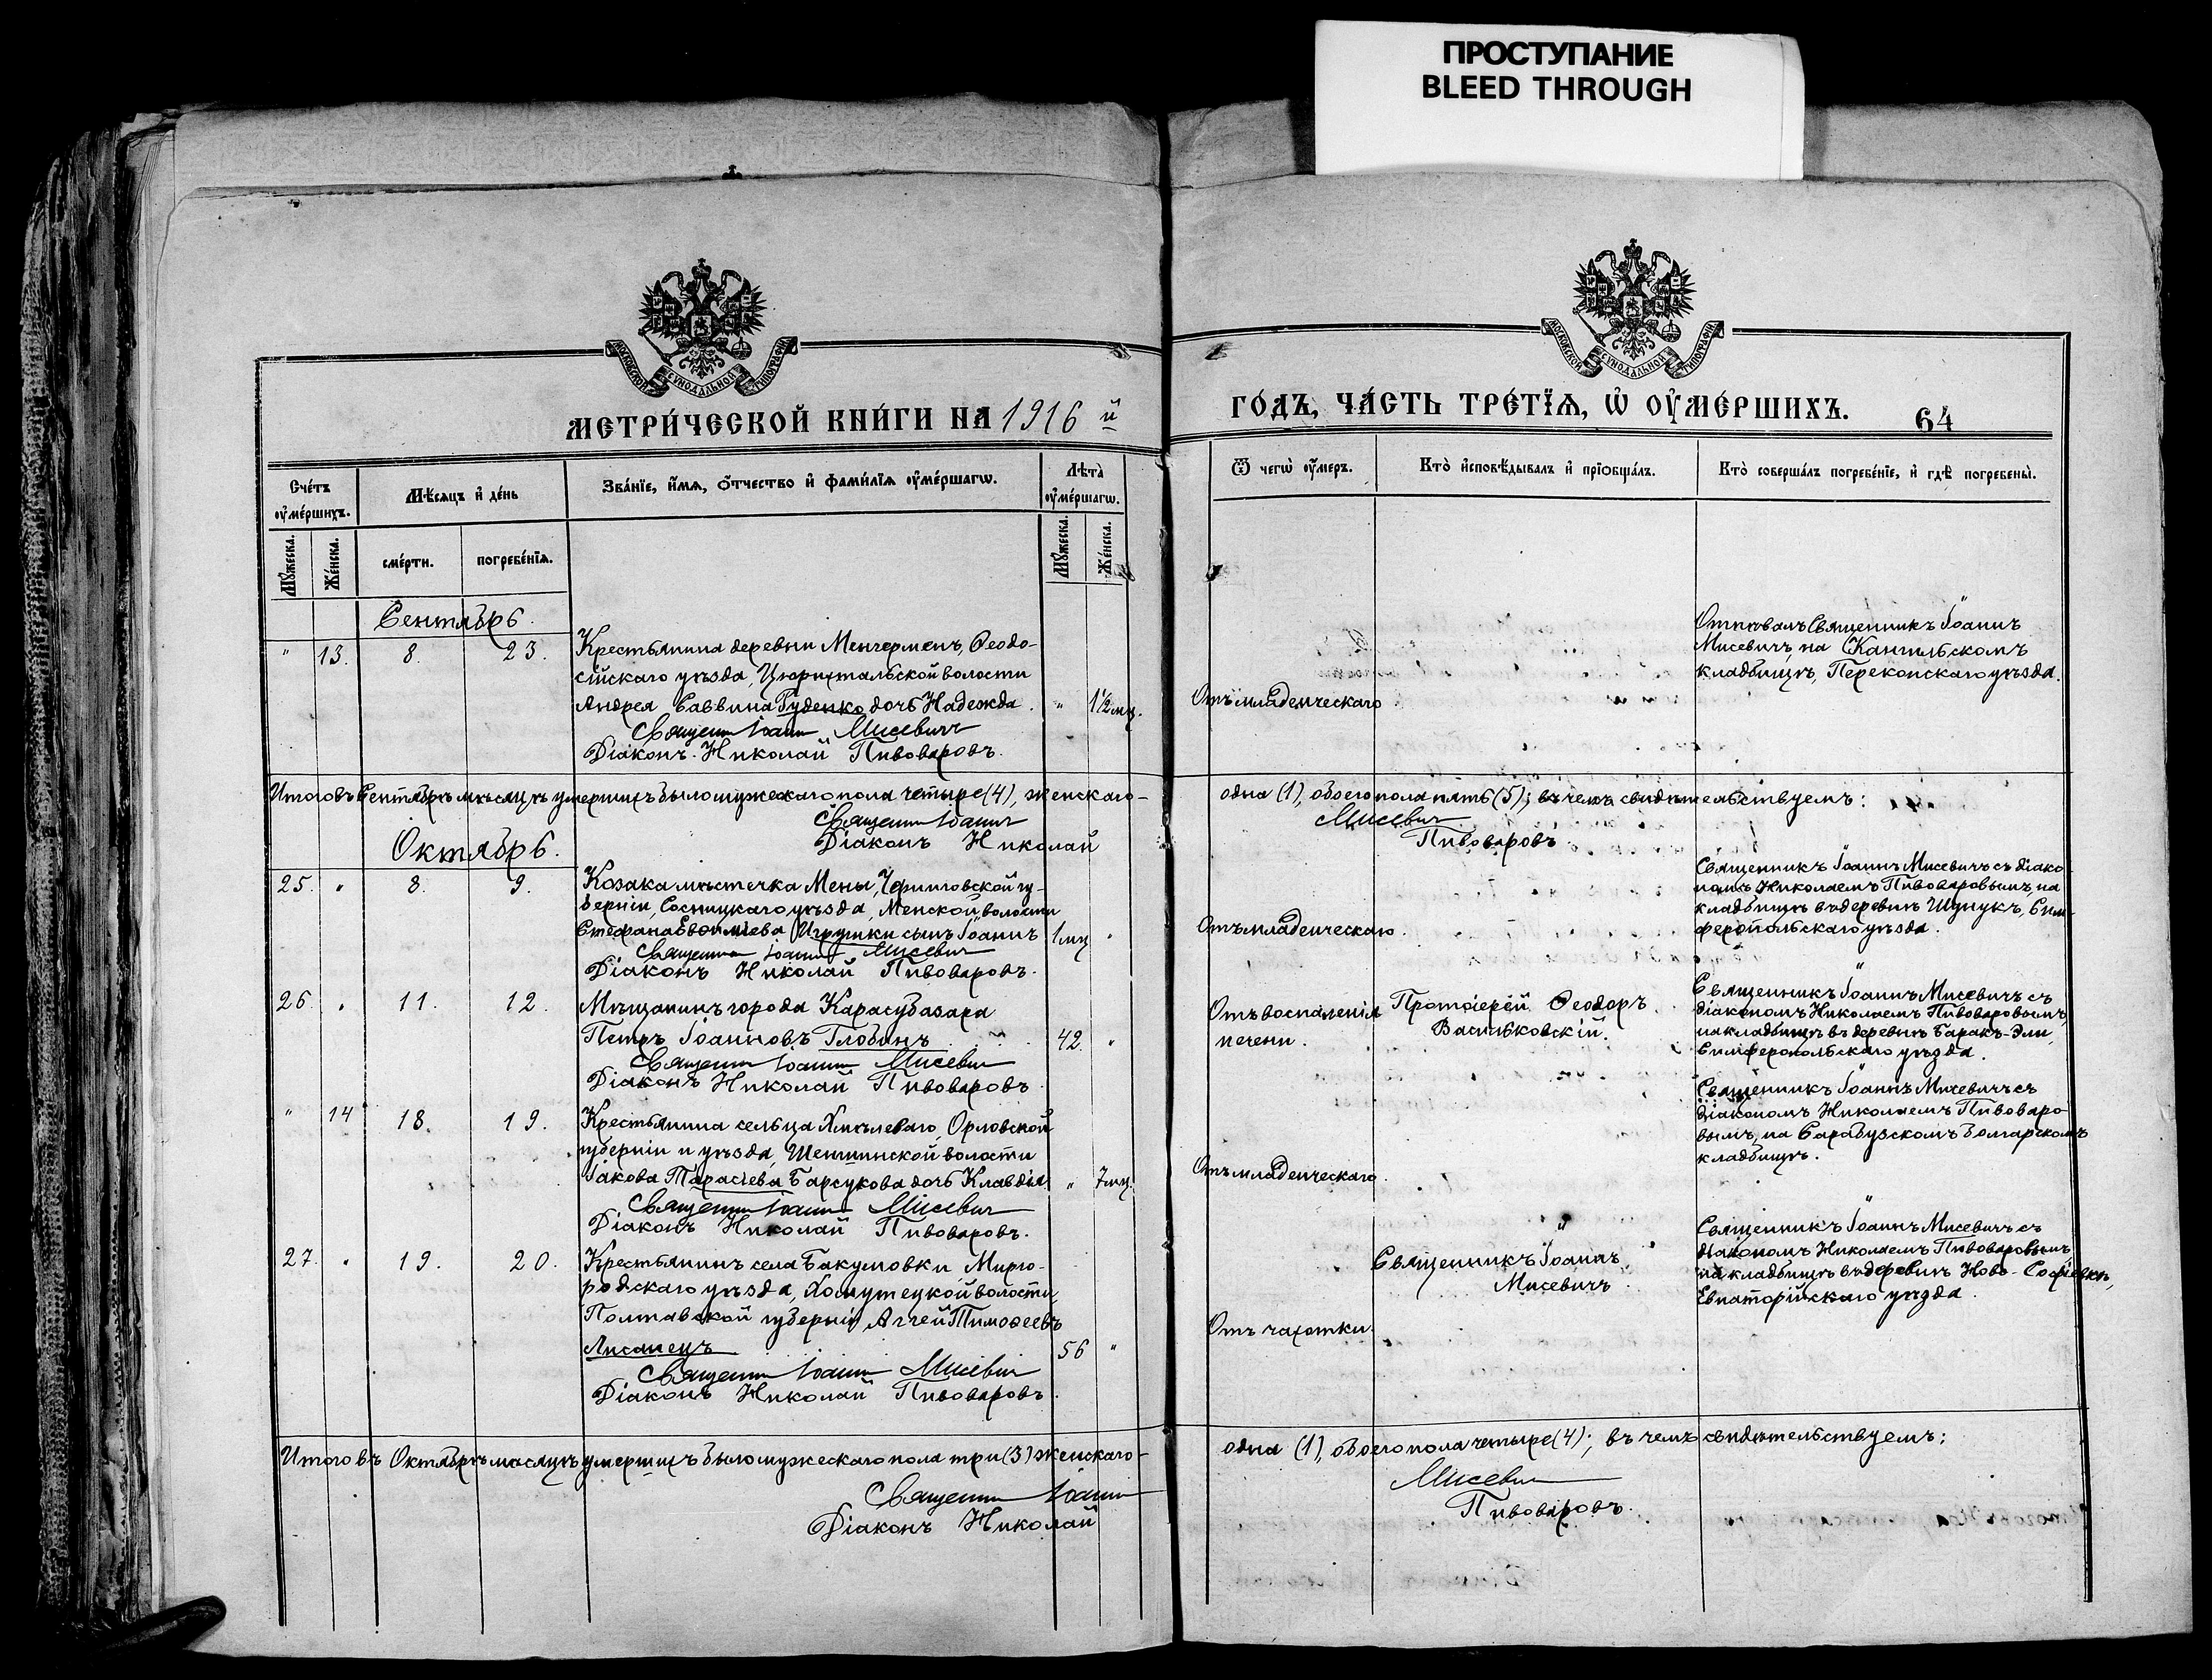 ПРОСТУПАНИЕ
BLEED THROUGH
МОСКОВСКОЙ СУНОДАЛЬНОЙ ТИПОГРАФІИ
МОСКОВСКОЙ СУНОДАЛЬНОЙ ТИПОГРАФІИ
МЕТРИ́ЧЕСКОЙ КНИ́ГИ НА 1916 й
ГО́ДЪ, ЧА́СТЬ ТРЕ́ТЇѦ, Ѡ҆ ОУ҆МЕ́РШИХЪ.
64
Сче́тъ оу҆ме́ршихъ.
Мѣ́сяцъ и҆ де́нь
Зва́нїе, и҆́мѧ, ѻ҆́тчество и҆ фами́лїѧ оу҆ме́ршагѡ.
Лѣ́та оу҆ме́ршагѡ.
Ѿ чегѡ̀ оу҆́меръ.
Кто̀ и҆сповѣ́дывалъ и҆ прїѡбща́лъ.
Кто̀ соверша́лъ погребе́нїе, и҆ гдѣ̀ погребены̀.
Му́жеска.
Же́нска.
сме́рти.
погребе́нїѧ.
Му́жеска.
Же́нска.
Сентябрь.
" 13. 8. 23.
Крестьянина деревни Менгермен, Ѳеодо-
сійскаго уѣзда, Цюрихтальской волости
Андрея Саввина Гуденко дочь Надежда. " 1½ мц.
Священн Іоанн Мисевич
Діаконъ Николай Пивоваровъ.
Отъ младенческаго
Отпѣвалъ Священникъ Іоаннъ
Мисевичъ, на Кангильскомъ
кладбищѣ, Перекопскаго уѣзда.
Итого въ Сентябрѣ мѣсяцѣ умершихъ было мужескаго пола четыре (4), женскаго –
одна (1), обоего пола пять (5); въ чемъ свидѣтельствуемъ:
Священн Іоанн Мисевич
Діаконъ Николай Пивоваровъ
Октябрь.
25. " 8. 9.
Козака мѣстечка Мены, Черниговской гу-
берніи, Сосницкаго уѣзда, Менской волости
Стефана Евѳиміева Игрушки сынъ Іоаннъ 1 мц "
Священн Іоанн Мисевич
Діаконъ Николай Пивоваровъ.
Отъ младенческаго.
"
Священникъ Іоаннъ Мисевичъ съ діако-
номъ Николаемъ Пивоваровымъ, на
кладбищѣ въ деревнѣ Шунукъ, Сим-
феропольскаго уѣзда.
26. " 11. 12.
Мѣщанинъ города Карасубазара
Петръ Іоанновъ Глобинъ 42. "
Священн Іоанн Мисевич
Діаконъ Николай Пивоваровъ.
Отъ воспаленія
печени.
Протоіерей Ѳеодоръ
Васильковскій.
"
Священникъ Іоаннъ Мисевичъ съ
діакономъ Николаемъ Пивоваровымъ,
на кладбищѣ въ деревнѣ Баракъ-Эли,
Симферопольскаго уѣзда.
" 14 18. 19.
Крестьянина сельца Хмѣлеваго, Орловской
губерніи и уѣзда, Шеншинской волости
Іакова Тарасіева Барсукова дочь Клавдія " 7 мц.
Священн Іоанн Мисевич
Діаконъ Николай Пивоваровъ.
Отъ младенческаго.
"
Священникъ Іоаннъ Мисевичъ съ
діакономъ Николаемъ Пивоваро-
вымъ, на Сарабузскомъ болгарскомъ
кладбищѣ.
27. " 19. 20.
Крестьянинъ села Бакумовки Мирго-
родскаго уѣзда, Хомутецкой волости,
Полтавской губерніи Аггей Тимоѳеевъ
Лисанецъ 56 "
Священн Іоанн Мисевич
Діаконъ Николай Пивоваровъ.
Отъ чахотки.
"
Священникъ Іоаннъ
Мисевичъ.
"
Священникъ Іоаннъ Мисевичъ съ
діакономъ Николаемъ Пивоваровымъ
на кладбищѣ въ деревнѣ Ново-Софіевкѣ,
Евпаторійскаго уѣзда.
Итого въ Октябрѣ мѣсяцѣ умершихъ было мужескаго пола три (3) женскаго –
одна (1), обоего пола четыре (4); въ чемъ свидѣтельствуемъ:
Священн Іоанн Мисевич
Діаконъ Николай Пивоваровъ.